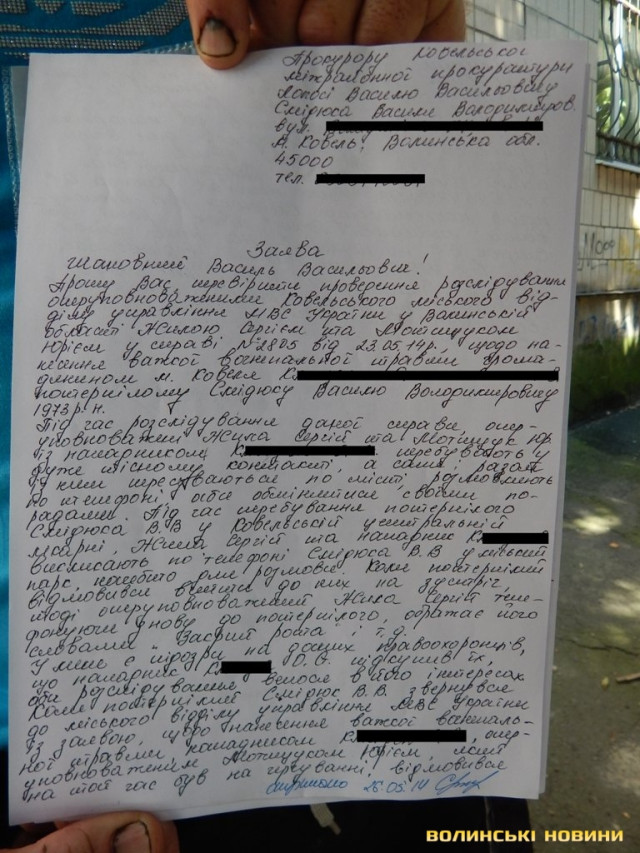 Прокурору Ковельської
міжрайонної прокуратури
Лопосі Василю Васильовичу
Смідюса Василя Володимиров.
вул.
м. Ковель, Волинська обл.
45000
тел.
Заява
Шановний Василь Васильович!
Прошу Вас перевірити проведення розслідування
оперуповноваженими Ковельського міського від-
ділу управління МВС України у Волинській
області Жилою Сергієм та Мотищуком
Юрієм у справі №1805 від 23.05.14р., щодо на-
несення важкої тілесної травми грома-
дянином м. Ковеля К
потерпілому Смідюсу Василю Володимировичу
1973 р.н.
Під час розслідування даної справи, опер-
уповноважені Жила Сергій та Мотищук Юр
із нападником К перебувають у
дуже тісному контакті, а саме: разом
із ним пересуваються по місті, розмовляють
по телефоні, аби обмінятися своїми по-
радами. Під час перебування потерпілого
Смідюса В.В у Ковельській центральній
лікарні, Жила Сергій та нападник К
викликають по телефоні Смідюса В.В у міський
парк, начебто для розмови. Коли потерпілий
відмовився вийти до них на зустріч,
тоді оперуповноважений Жила Сергій теле-
фонуючи знову до потерпілого, ображає його
словами "Закрий рота" і т.д.
У мене є підозри на даних правоохоронців,
що нападник К О.О. підкупив їх,
аби розслідування велося в його інтересах
Коли потерпілий Смідюс В.В. звернувся
до міського відділу управління МВС України
із заявою, щодо нанесення важкої
ної травми, нападником К, опер-
уповноваженим Мотищуком Юрієм, який
на той час був на чергуванні, відмовився
отримано 26.05.14
ВОЛИНСЬКІ НОВИНИ